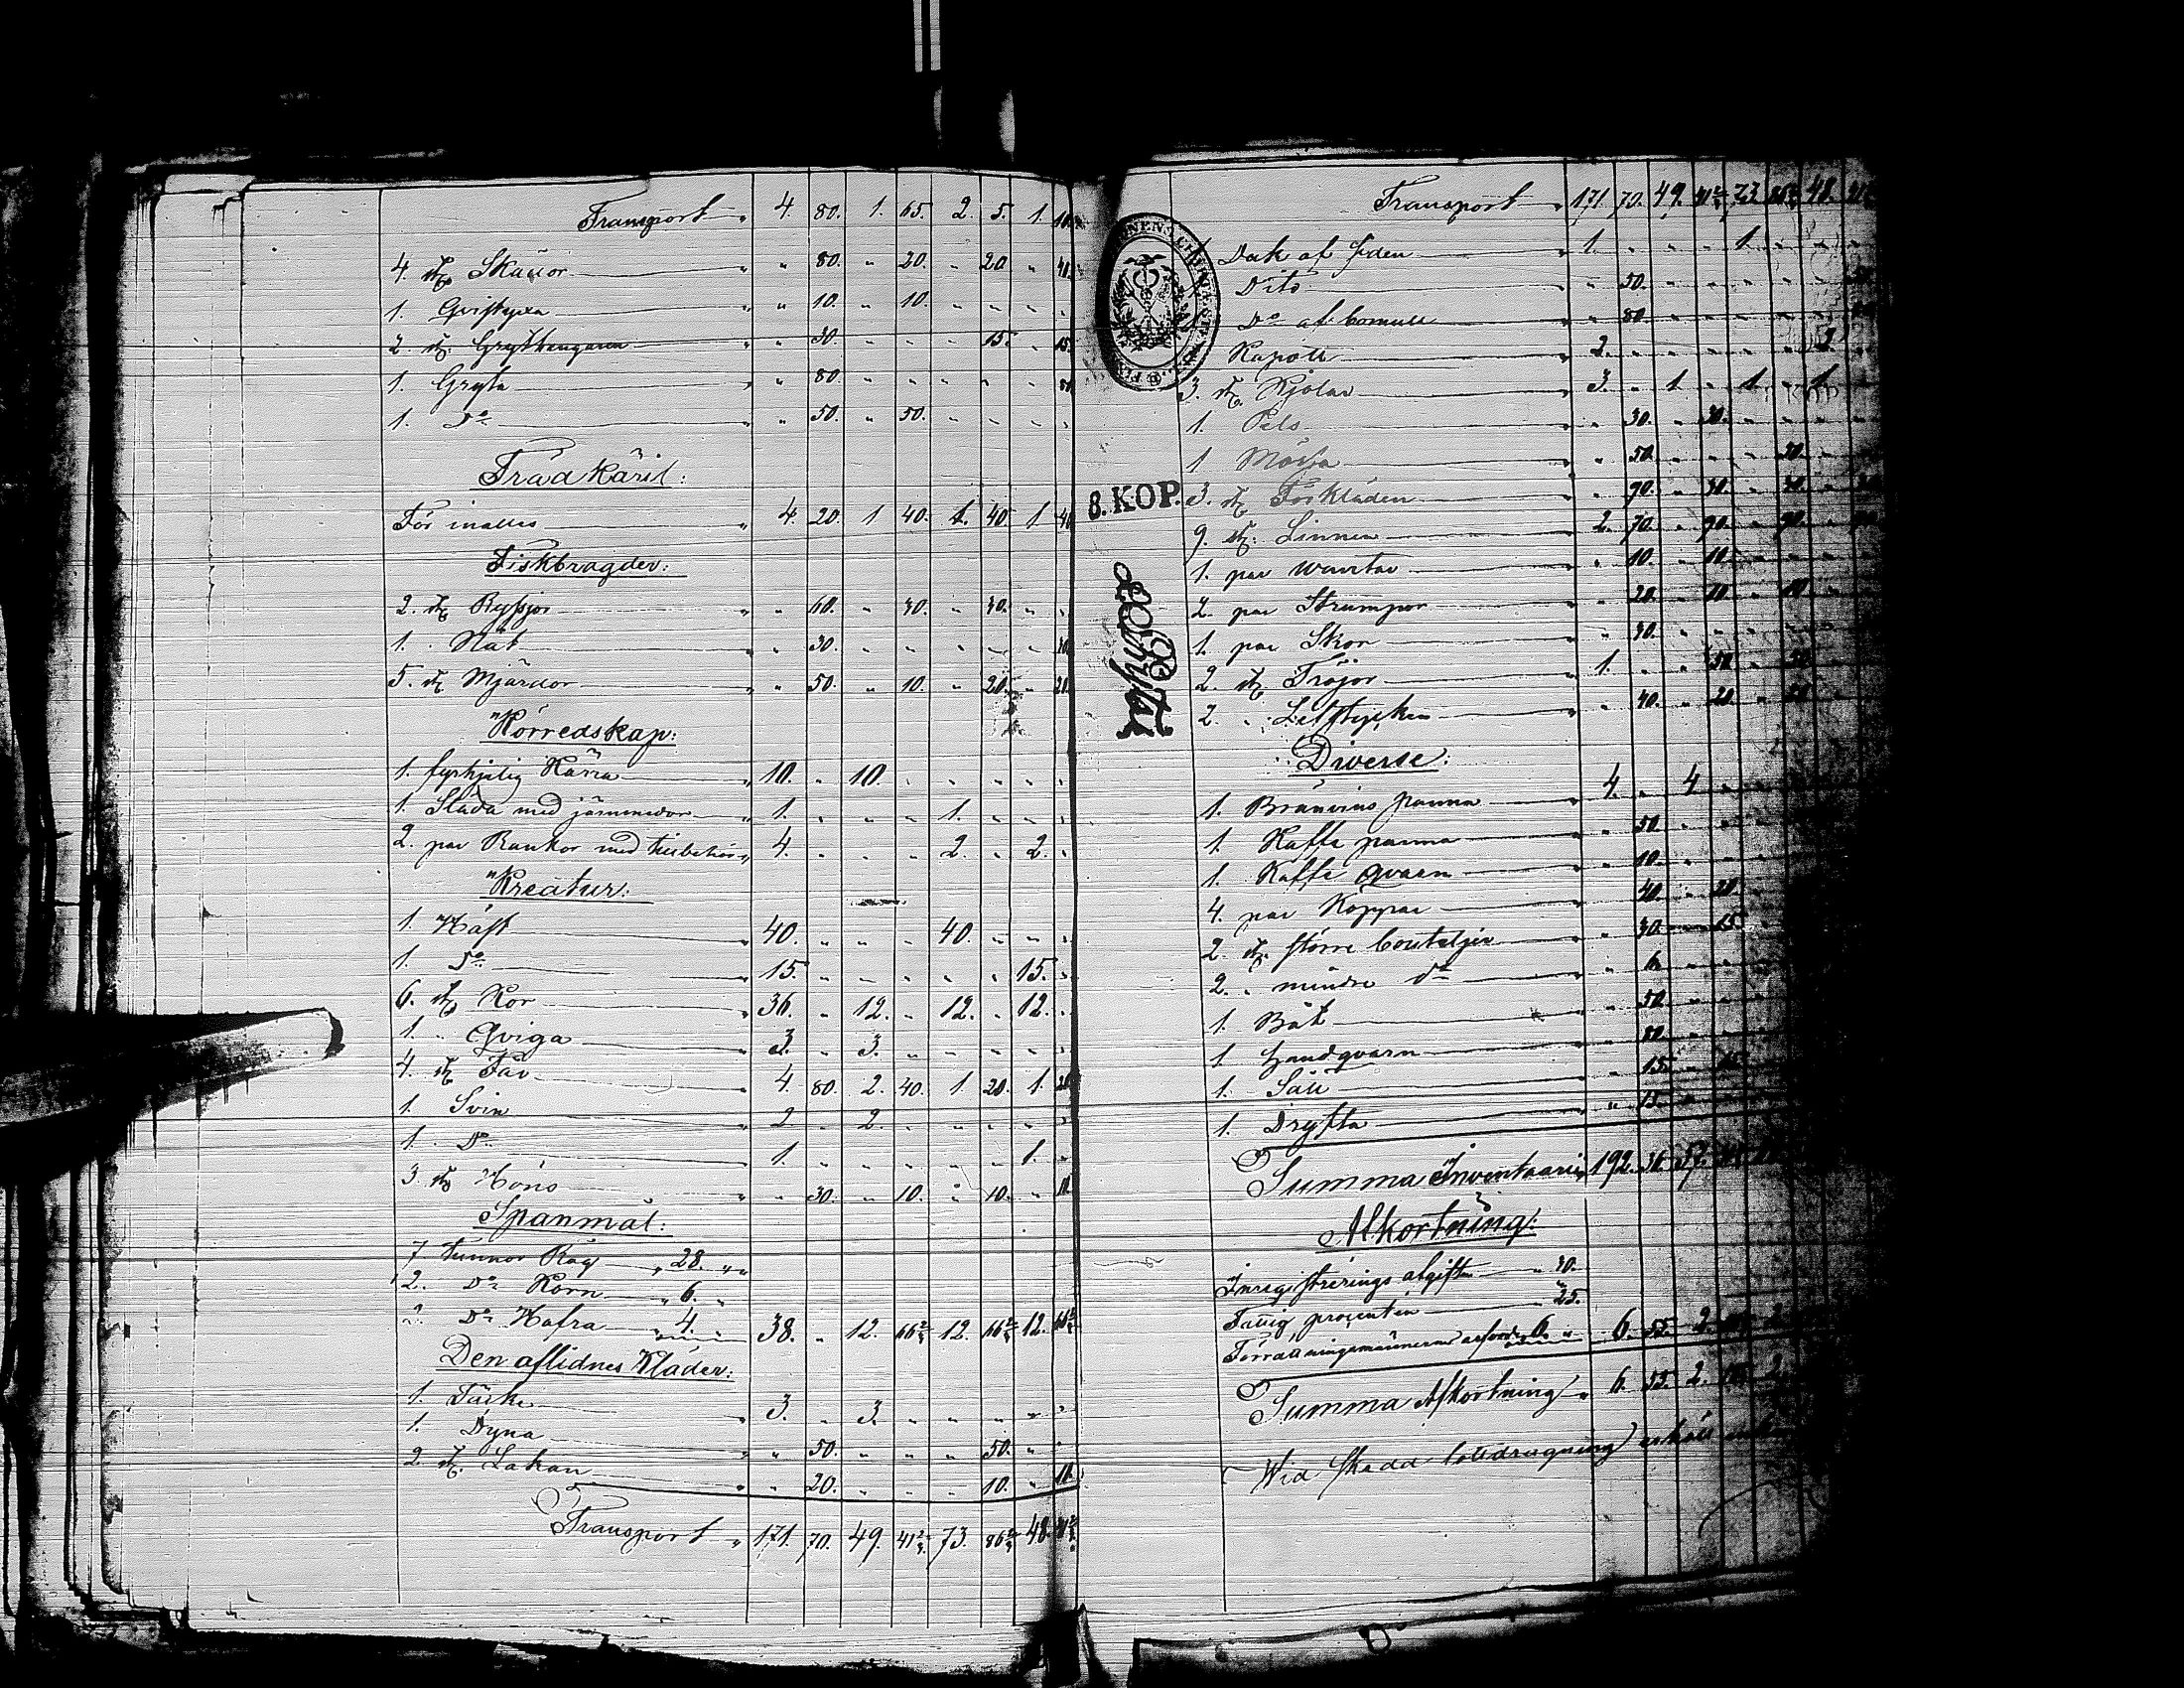 Transport „ 4. 80. 1. 65. 2. 5. 1. 10.
4 st. Skäror „ „ 80. „ 20. „ 20 „ 40.
1. Gvistyxa „ „ 10. „ 10. „ „ „ „
2. st. „ „ 30. „ „ „ 15. „ 15.
1. Gryta „ „ 80. „ „ „ „ „ 80
1. Do „ „ 50. „ 50. „ „ „ „
Trädkäril:
För inalles „ 4. 20. 1 40. 1. 40 1. 40
Fiskbragder:
2. st. Ryssjor „ „ 60. „ 30. „ 30. „ „
1. Nät „ „ 30. „ „ „ „ „ 30.
5. st. Mjärdor „ „ 50. „ 10. „ 20. „ 20.
Körredskap:
1. fyrhjulig Kärra „ 10. „ 10. „ „ „ „ „
1. Släda med järnmedor „ 1. „ „ „ 1. „ „ „
2. par Rankor med tillbehör „ 4. „ „ „ 2. „ 2. „
Kreatur:
1. Häst „ 40. „ „ „ 40. „ „ „
1. Do „ 15. „ „ „ „ „ 15. „
6. st. Kor „ 36. „ 12. „ 12. „ 12. „
1. „ Qviga „ 3. „ 3. „ „ „ „ „
4. st. Får „ 4. 80. 2. 40. 1. 20. 1. 20
1. Svin „ 2 „ 2. „ „ „ „ „
1. Do „ 1. „ „ „ „ „ 1. „
3. st. Höns „ „ 30. „ 10. „ 10. „ 10
Spanmål:
7 tunnor Råg „ 28. „ „
2. Do Korn „ 6. „
2. Do Hafra „ 4. „ 38. „ 12. 66 2/3 12. 66 2/3 12. 66 2/3
Den aflidnes Kläder:
1. Täcke „ 3. „ 3. „ „ „ „ „
1. Dyna „ „ 50. „ „ „ 50. „ „
2. st. Lakan „ „ 20. „ „ „ 10. „ 10.
Transport „ 171. 70. 49. 41 2/3 73. 86 2/3 48. 41 2/3
8. KOP.
Transport „ 171. 70. 49. 41 2/3 73. 86 2/3 48.
1. Duk af siden „ 1. „ „ „ 1. „ „
1. Dito „ „ 50. „ „ „ „ „
1. Do af bomull „ „ 80. „ „ „ „ „
1. Kapott „ 2. „ „ „ „ „ 2.
3. st. Kjolar „ 3. „ 1. „ 1. „ 1.
1. Pels „ „ 30. „ 30. „ „ „
1 Mössa „ „ 50. „ „ „ 50. „
3. st. Förkläden „ „ 90. „ 30. „ 30. „
9. st. Linnen „ 2. 70. „ 90. „ 90. „
1. par wantar „ „ 10. „ 10. „ „ „
2 par Strumpor „ „ 20. „ 10. „ 10. „
1. par Skor „ „ 30. „ „ „ „
2. st. Tröjor „ 1. „ „ 50. „ 50.
2. „ Lifstycken „ „ 40. „ 20. „ 20
Diverse:
1. Bränvins panna „ 4. „ 4 „
1. Kaffe panna „ „ 50. „ „
1. Kaffe qvarn „ „ 10. „ „
4. par Koppar „ „ 40. „ 20.
2. st. större bouteljer „ „ 30. „ 15.
2. „ mindre do „ „ 6. „ „
1. Båt „ „ 50. „ „
1. Handqvarn „ „ 80. „ „
1. Såll „ „ 15. „ 15.
1. Dryfta „ „ 15. „ „
Summa Inventarii „ 192. 36. 57.
Afkortning:
Inregistrerings afgiften „ 30.
Fattig procenten „ 25.
Förrättningsmännerne arfvode „ 6. „ 6. 55. 2.
Summa Afkortning „ 6. 55. 2. 2.
Wid skedd lottdragning